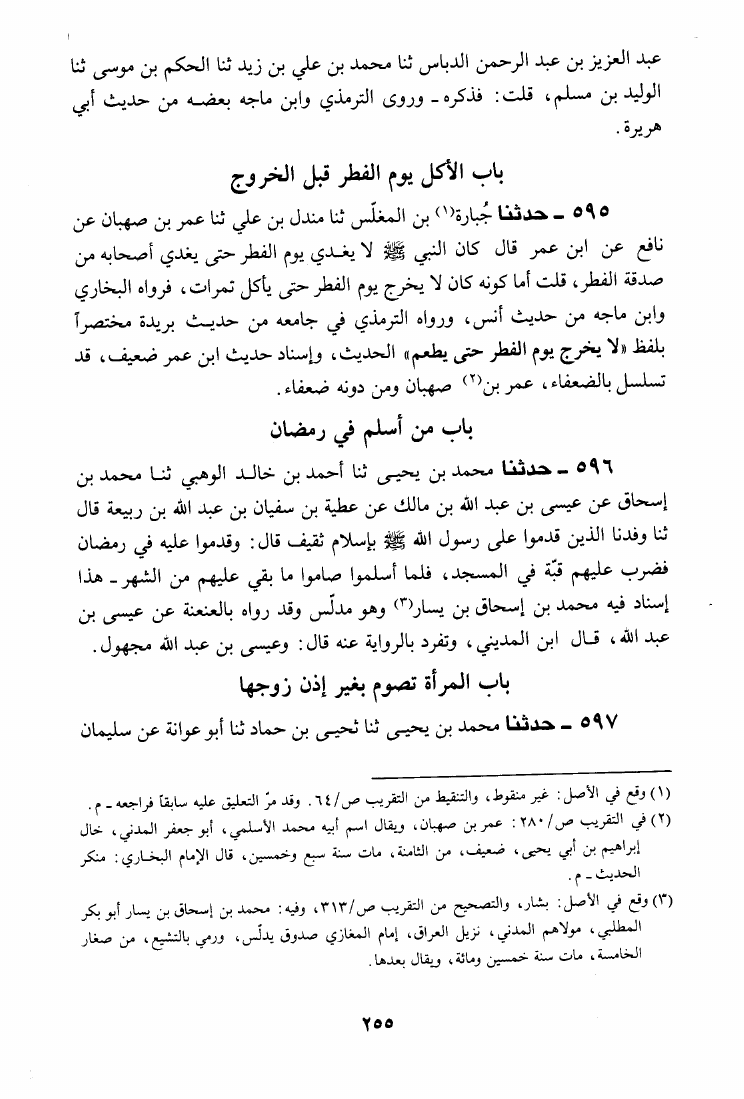 عبد العزيز بن عبد الرحمن الدباس ثنا محمد بن علي بن زيد ثنا الحكم بن موسى ثنا
الوليد بن مسلم، قلت: فذكره - وروى الترمذي وابن ماجه بعضه من حديث أبي
هريرة.
باب الأكل يوم الفطر قبل الخروج
٥٩٥ - حدثنا جُبارة(١) بن المغلّس ثنا مندل بن علي ثنا عمر بن صهبان عن
نافع عن ابن عمر قال كان النبي ﷺ لا يغدي يوم الفطر حتى يغدي أصحابه من
صدقة الفطر، قلت أما كونه كان لا يخرج يوم الفطر حتى يأكل تمرات، فرواه البخاري
وابن ماجه من حديث أنس، ورواه الترمذي في جامعه من حديث بريدة مختصراً
بلفظ «لا يخرج يوم الفطر حتى يطعم» الحديث، وإسناد حديث ابن عمر ضعيف، قد
تسلسل بالضعفاء، عمر بن(٢) صهبان ومن دونه ضعفاء.
باب من أسلم في رمضان
٥٩٦ - حدثنا محمد بن يحيى ثنا أحمد بن خالد الوهبي ثنا محمد بن
إسحاق عن عيسى بن عبد الله بن مالك عن عطية بن سفيان بن عبد الله بن ربيعة قال
ثنا وفدنا الذين قدموا على رسول الله ﷺ بإسلام ثقيف قال: وقدموا عليه في رمضان
فضرب عليهم قبّة في المسجد، فلما أسلموا صاموا ما بقي عليهم من الشهر - هذا
إسناد فيه محمد بن إسحاق بن يسار(٣) وهو مدلّس وقد رواه بالعنعنة عن عيسى بن
عبد الله، قال ابن المديني، وتفرد بالرواية عنه قال: وعيسى بن عبد الله مجهول.
باب المرأة تصوم بغير إذن زوجها
٥٩٧ - حدثنا محمد بن يحيى ثنا ثحيى بن حماد ثنا أبو عوانة عن سليمان
(١) وقع في الأصل: غير منقوط، والتنقيط من التقريب ص/٦٤. وقد مرّ التعليق عليه سابقاً فراجعه - م.
(٢) في التقريب ص/٢٨٠: عمر بن صهبان، ويقال اسم أبيه محمد الأسلمي، أبو جعفر المدني، خال
إبراهيم بن أبي يحيى، ضعيف، من الثامنة، مات سنة سبع وخمسين، قال الإمام البخاري: منكر
الحديث - م.
(٣) وقع في الأصل: بشار، والتصحيح من التقريب ص/٣١٣، وفيه: محمد بن إسحاق بن يسار أبو بكر
المطلبي، مولاهم المدني، نزيل العراق، إمام المغازي صدوق يدلّس، ورمي بالتشيع، من صغار
الخامسة، مات سنة خمسين ومائة، ويقال بعدها.
٢٥٥